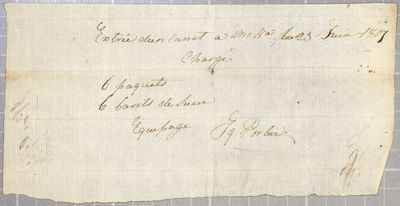 Entrée d'un canot a le 23 Juin 1807
Chargé
6 paquets
6 barils de Sucre
Equipage Jq Porlier